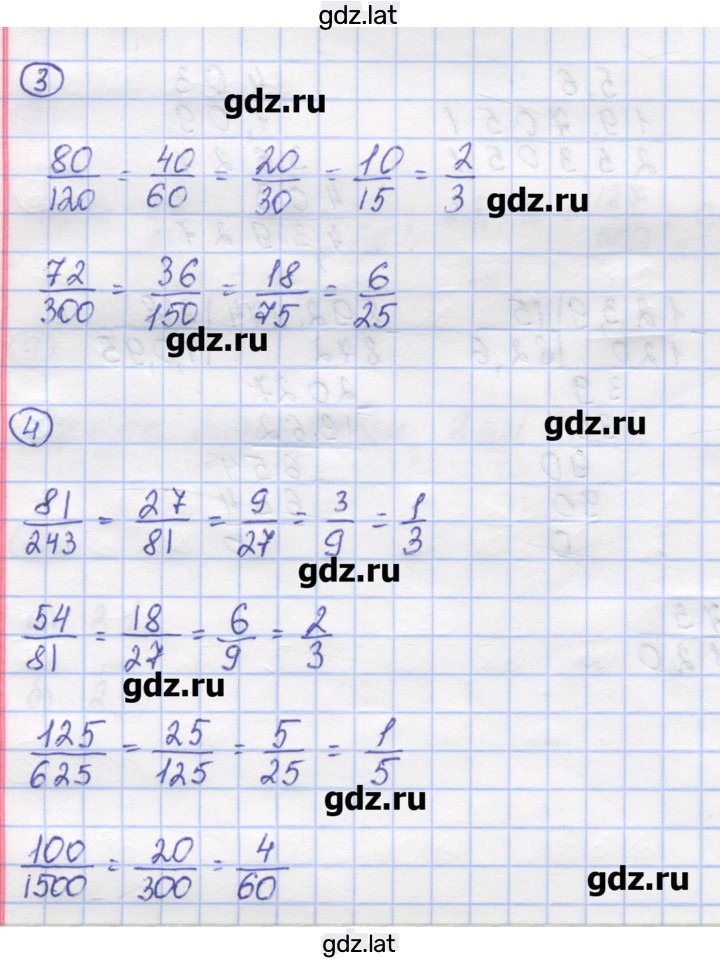 gdz.lat
3
gdz.ru
80/120 = 40/60 = 20/30 = 10/15 = 2/3
gdz.ru
72/300 = 36/150 = 18/75 = 6/25
gdz.ru
4
gdz.ru
81/243 = 27/81 = 9/27 = 3/9 = 1/3
gdz.ru
54/81 = 18/27 = 6/9 = 2/3
gdz.ru
125/625 = 25/125 = 5/25 = 1/5
gdz.ru
100/1500 = 20/300 = 4/60
gdz.ru
gdz.lat